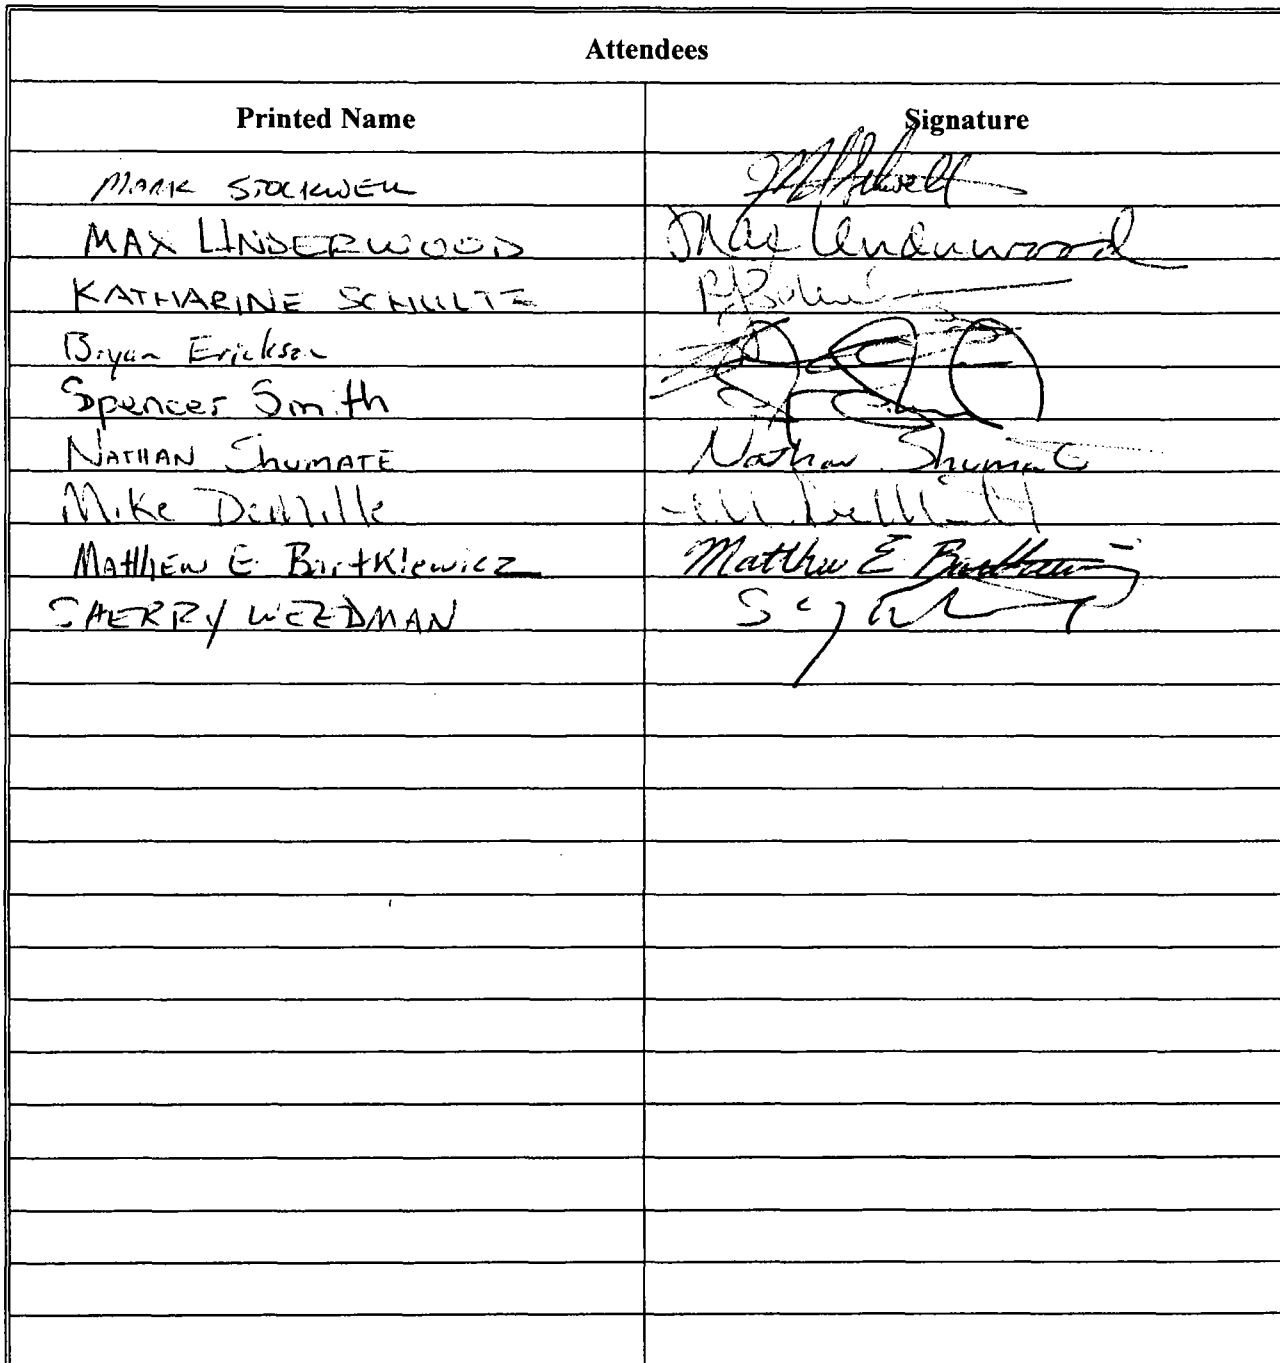 Attendees
Printed Name Signature
MARK STOCKWELL
MAX UNDERWOOD Max Underwood
KATHARINE SCHULTZ
Bryan Erickson
Spencer Smith
NATHAN SHUMATE Nathan Shumate
Mike DeMille
MATTHEW E. BartKiewicz Matthew E
SHERRY WEEDMAN